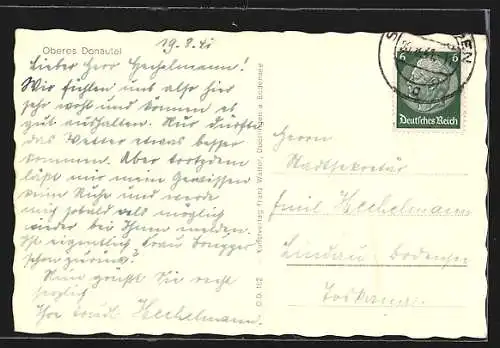 Oberes Donautal
19.8.41
Lieber Herr Hechelmann!
Wir fühlen uns also hier
sehr wohl und können es
gut aushalten. Nur dürfte
das Wetter etwas besser
kommen. Aber trotzdem
läßt mir mein Gewissen
keine Ruhe und werde
mich sobald als möglich
wieder bei Ihnen melden.
Ist eigentlich Frau
schon zurück?
Nun grüßt Sie recht
herzlich
Ihre Hechelmann.
Kunstverlag Franz Walter, a. Bodensee
6 6
Deutsches Reich
Herrn
Stadtsekretär
Emil Hechelmann
Lindau Bodensee